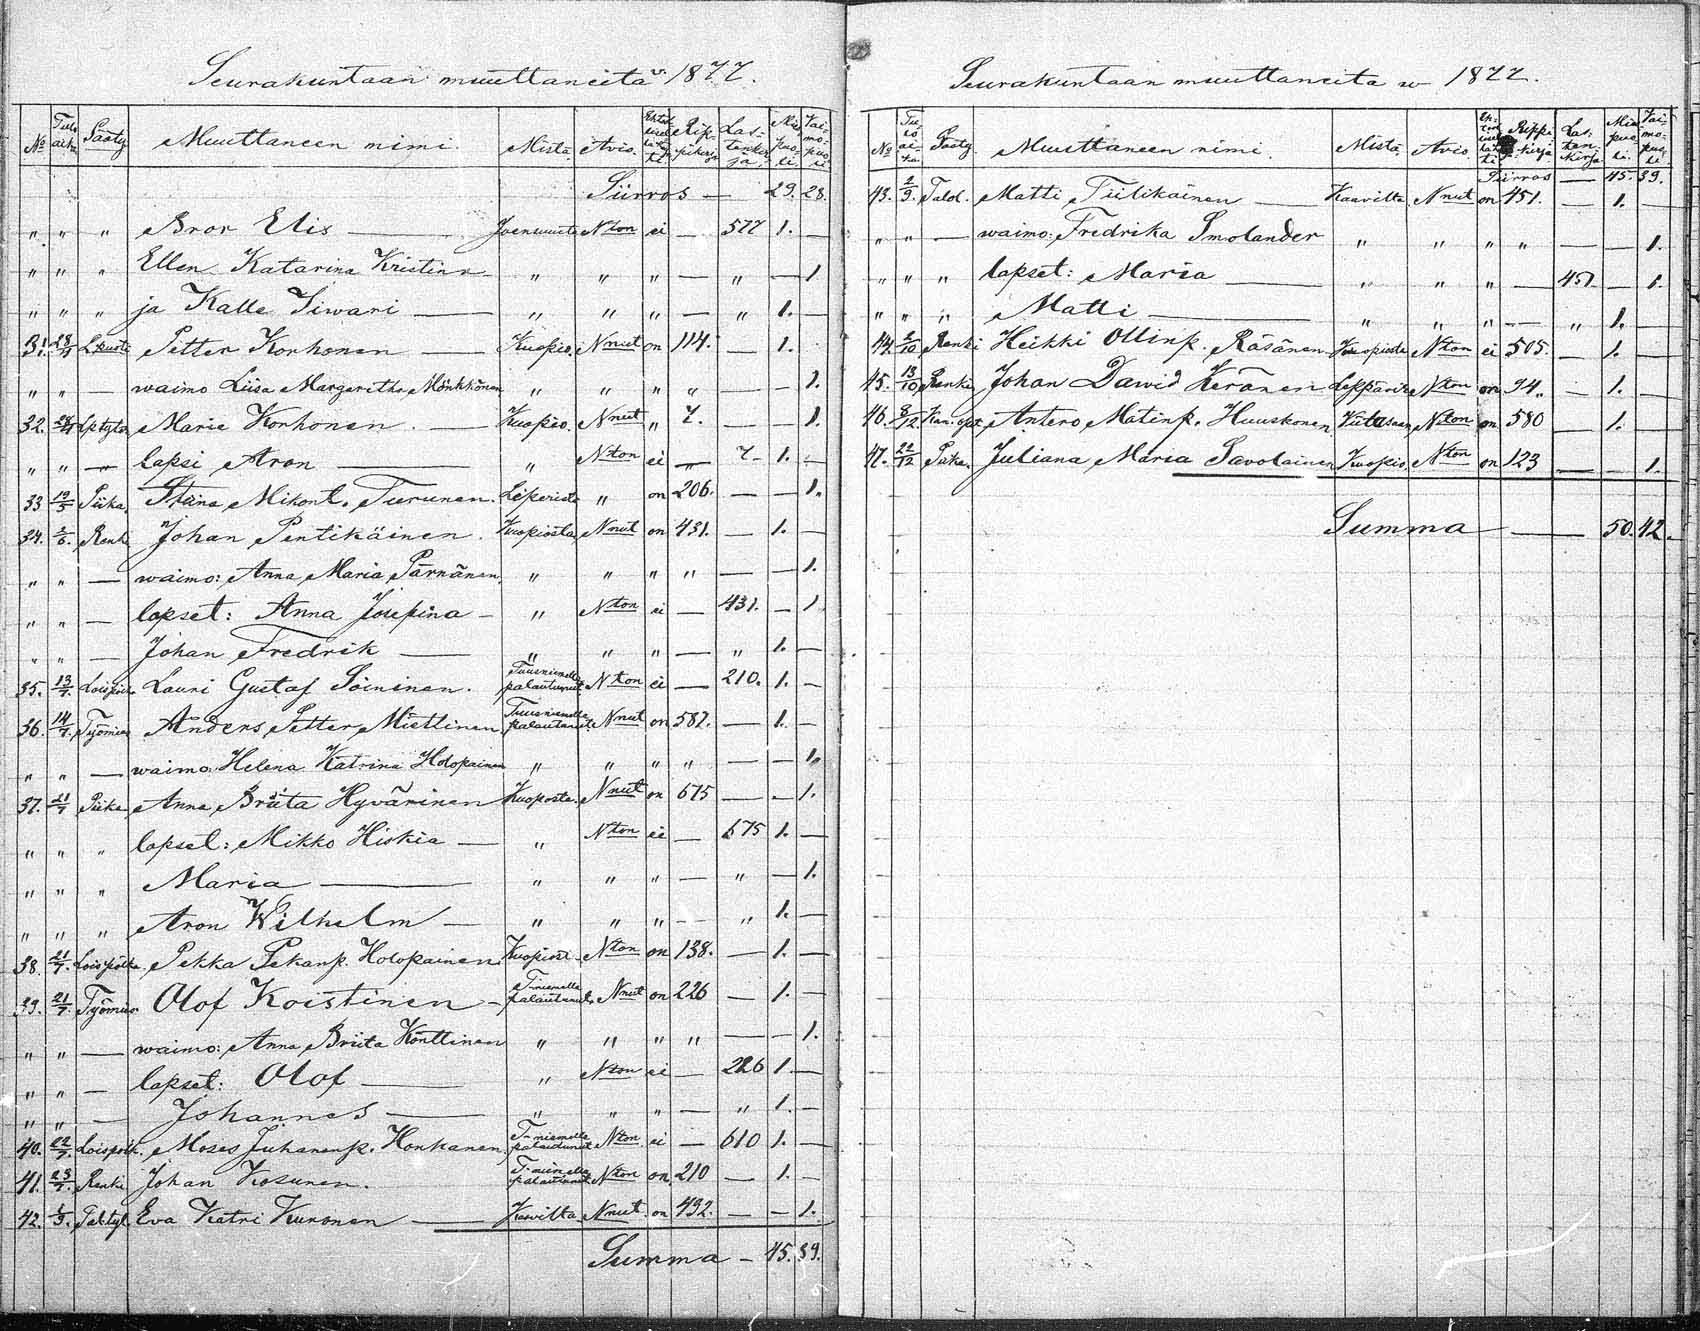 Seurakuntaan muuttaneita v. 1877.
No Tulo aika Sääty Muuttaneen nimi. Mistä. Avio. Rip- pikirja Las- tenkirja Mies puo- li. Vai- mo- puo- li
Siirros — 29. 28.
" " " Bror Elis — Joensuusta Nton ei — 577 1. —
" " " Ellen Katarina Kristina — " " " — " — 1
" " " ja Kalle Siwari — " " " — " 1. —
31. 28/4 Petter Korhonen — Kuopio. Nnut on 114. — 1. —
" " — waimo Liisa Margeretha Mönkkönen " " " " — — 1.
32. Maria Korhonen. — Kuopio. Nnut " 7. — — 1.
" " — lapsi Aron — " Nton ei — 7. 1. —
33 19/5 Piika. Stina Mikont. Turunen. Liperistä " on 206. — — 1.
34. 2/6. Renki Johan Pentikäinen. Kuopiosta Nnut on 431. — 1. —
" " — waimo: Anna Maria Pärnänen. " " " " — — 1.
" " — lapset: Anna Josepina — " Nton ei — 431. — 1
" " — Johan Fredrik — " " " — " 1. —
35. 13/7. Lauri Gustaf Soininen. Tuusniemelle palautunut Nton ei — 210. 1. —
36. 14/7. Työmies Anders Petter Miettinen Tuusniemelle palautunut. Nnut on 587. — 1. —
" " — waimo: Helena Katrina Holopainen " " " " — — 1.
37. 21/7 Piika Anna Briita Hyvärinen Kuopiosta. Nnut on 675 — — 1.
" " " lapset: Mikko Hiskia — " Nton ei — 675 1. —
" " " Maria — " " " — " — 1.
" " " Aron Wilhelm — " " " — " 1. —
38. 21/7. Loispoika. Pekka Pekanp. Holopainen. Kuopiost. Nton on 138. — 1. —
39. 21/7. Työmies. Olof Koistinen — T-niemelle palautunut. Nnut on 226 — 1. —
" " — waimo: Anna Briita Konttinen " " " " — — 1.
" " — lapset: Olof — " Nton ei — 226 1. —
" " — Johannes — " " " — " 1. —
40. 22/7. Loispoik. Moses Juhananp. Honkanen. T-niemelle palautunut Nton. ei — 610 1. —
41. 23/7. Renki Johan Kosunen. T-niemelle palautunut Nton on 210 — 1. —
42. Eva Katri Kuronen — Kaavilta Nnut. on 492. — — 1.
Summa — 45. 39.
Seurakuntaan muuttaneita w 1877.
No Tu lo ai- ka. Sääty. Muuttaneen nimi. Mistä. Avio. Rippi- kirja Las- ten- kirja Mies puo- li. Vai- mo- puo- li
Siirros — 45. 39.
43. 2/9. Talol. Matti Tiilikainen — Kaavilta. Nnut on 451. — 1. —
" " — waimo: Fredrika Smolander " " " " — — 1.
" " " lapset: Maria — " " " — 451 — 1.
" " " Matti — " " " — " 1. —
44. 2/10 Renki Heikki Ollinp. Räsänen Kuopiosta Nton ei 505. — 1. —
45. 13/10 Renki Johan Dawid Keränen Leppävir. Nton on 94. — 1. —
46. 8/12 Antero Matinp. Huuskonen. Viitasaari Nton on 580 — 1. —
47. 22/12 Piika. Juliana Maria Savolainen Kuopio. Nton on 123 — — 1.
Summa — 50. 42.